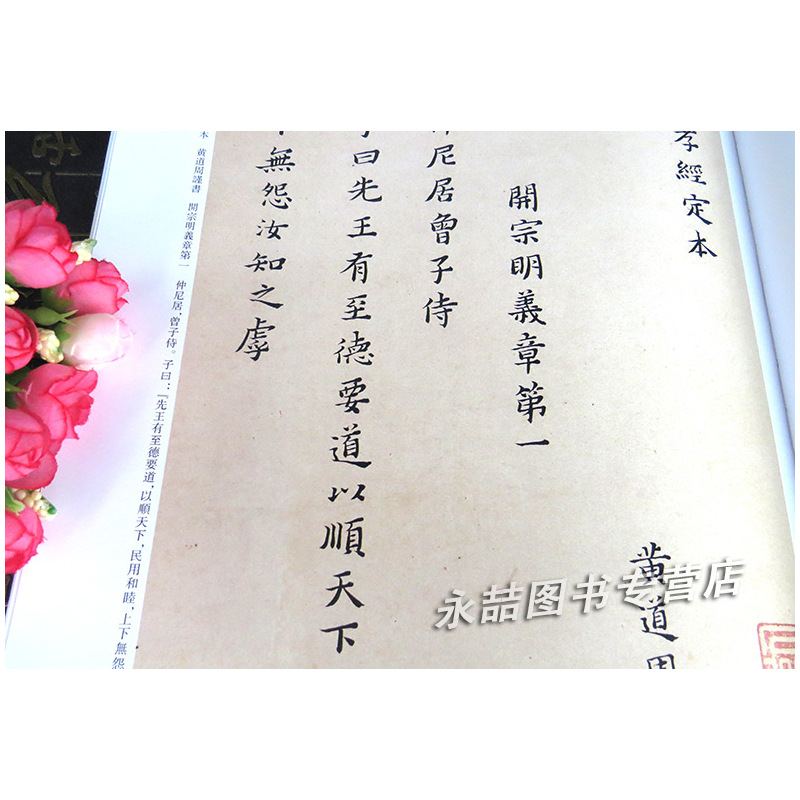 孝經定本
黄道周
開宗明義章第一
仲尼居曾子侍
子曰先王有至德要道以順天下
無怨汝知之虖
本 黄道周謹書 開宗明義章第一 仲尼居，曾子侍。子曰：『先王有至德要道，以順天下，民用和睦，上下無怨
永喆图书专营店